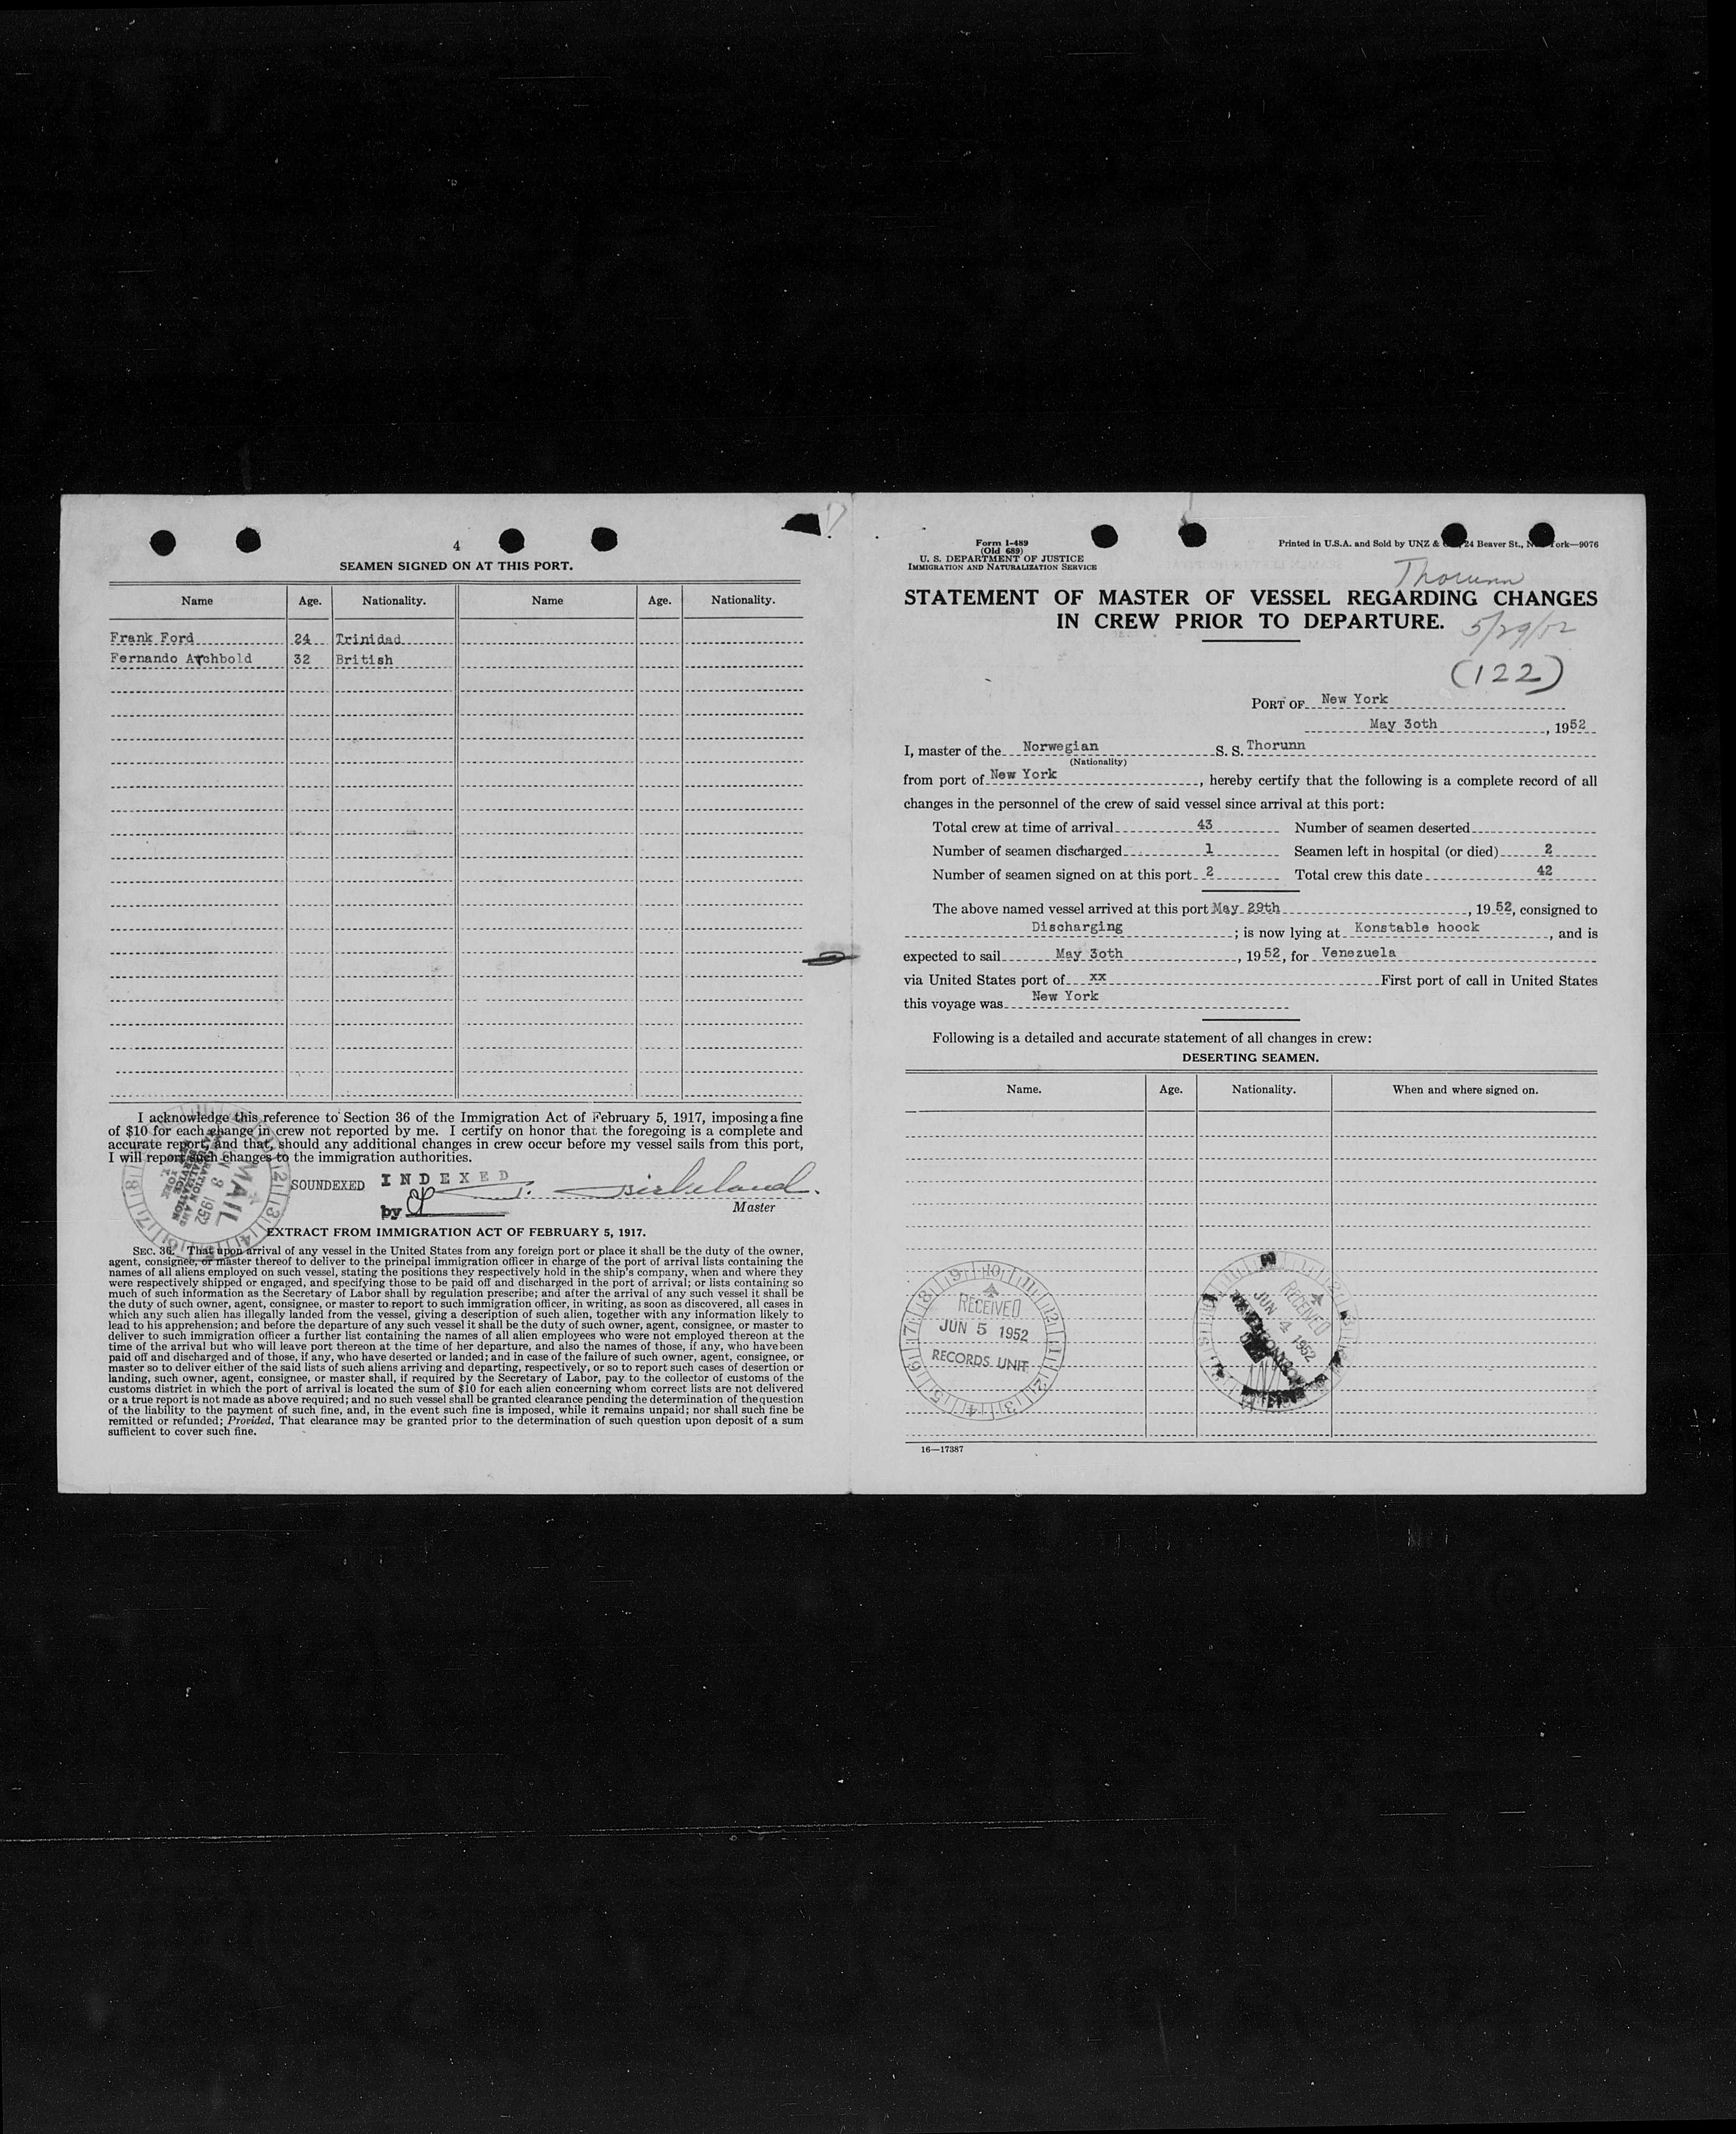 4
SEAMEN SIGNED ON AT THIS PORT.
Name Age. Nationality. Name Age. Nationality.
Frank Ford 24 Trinidad
Fernando Archbold 32 British
I acknowledge this reference to Section 36 of the Immigration Act of February 5, 1917, imposing a fine
of $10 for each change in crew not reported by me. I certify on honor that the foregoing is a complete and
accurate report, and that, should any additional changes in crew occur before my vessel sails from this port,
I will report such changes to the immigration authorities.
SOUNDEXED INDEXED
by
Master
MAIL
1952
EXTRACT FROM IMMIGRATION ACT OF FEBRUARY 5, 1917.
SEC. 36. That upon arrival of any vessel in the United States from any foreign port or place it shall be the duty of the owner,
agent, consignee, or master thereof to deliver to the principal immigration officer in charge of the port of arrival lists containing the
names of all aliens employed on such vessel, stating the positions they respectively hold in the ship's company, when and where they
were respectively shipped or engaged, and specifying those to be paid off and discharged in the port of arrival; or lists containing so
much of such information as the Secretary of Labor shall by regulation prescribe; and after the arrival of any such vessel it shall be
the duty of such owner, agent, consignee, or master to report to such immigration officer, in writing, as soon as discovered, all cases in
which any such alien has illegally landed from the vessel, giving a description of such alien, together with any information likely to
lead to his apprehension; and before the departure of any such vessel it shall be the duty of such owner, agent, consignee, or master to
deliver to such immigration officer a further list containing the names of all alien employees who were not employed thereon at the
time of the arrival but who will leave port thereon at the time of her departure, and also the names of those, if any, who have been
paid off and discharged and of those, if any, who have deserted or landed; and in case of the failure of such owner, agent, consignee, or
master so to deliver either of the said lists of such aliens arriving and departing, respectively, or so to report such cases of desertion or
landing, such owner, agent, consignee, or master shall, if required by the Secretary of Labor, pay to the collector of customs of the
customs district in which the port of arrival is located the sum of $10 for each alien concerning whom correct lists are not delivered
or a true report is not made as above required; and no such vessel shall be granted clearance pending the determination of the question
of the liability to the payment of such fine, and, in the event such fine is imposed, while it remains unpaid; nor shall such fine be
remitted or refunded; Provided, That clearance may be granted prior to the determination of such question upon deposit of a sum
sufficient to cover such fine.
Form I-489
(Old 689)
U. S. DEPARTMENT OF JUSTICE
IMMIGRATION AND NATURALIZATION SERVICE
Printed in U.S.A. and Sold by UNZ & 24 Beaver St., ork—9076
Thorunn
STATEMENT OF MASTER OF VESSEL REGARDING CHANGES
IN CREW PRIOR TO DEPARTURE.
5/29/52
(122)
PORT OF New York
May 3oth, 1952
I, master of the Norwegian S. S. Thorunn
(Nationality)
from port of New York, hereby certify that the following is a complete record of all
changes in the personnel of the crew of said vessel since arrival at this port:
Total crew at time of arrival 43 Number of seamen deserted
Number of seamen discharged 1 Seamen left in hospital (or died) 2
Number of seamen signed on at this port 2 Total crew this date 42
The above named vessel arrived at this port May 29th, 1952, consigned to
Discharging; is now lying at Konstable hoock, and is
expected to sail May 3oth, 1952, for Venezuela
via United States port of xx First port of call in United States
this voyage was New York
Following is a detailed and accurate statement of all changes in crew:
DESERTING SEAMEN.
Name. Age. Nationality. When and where signed on.
RECEIVED
JUN 5 1952
RECORDS UNIT
RECEIVED
JUN 4 1952
16—17387